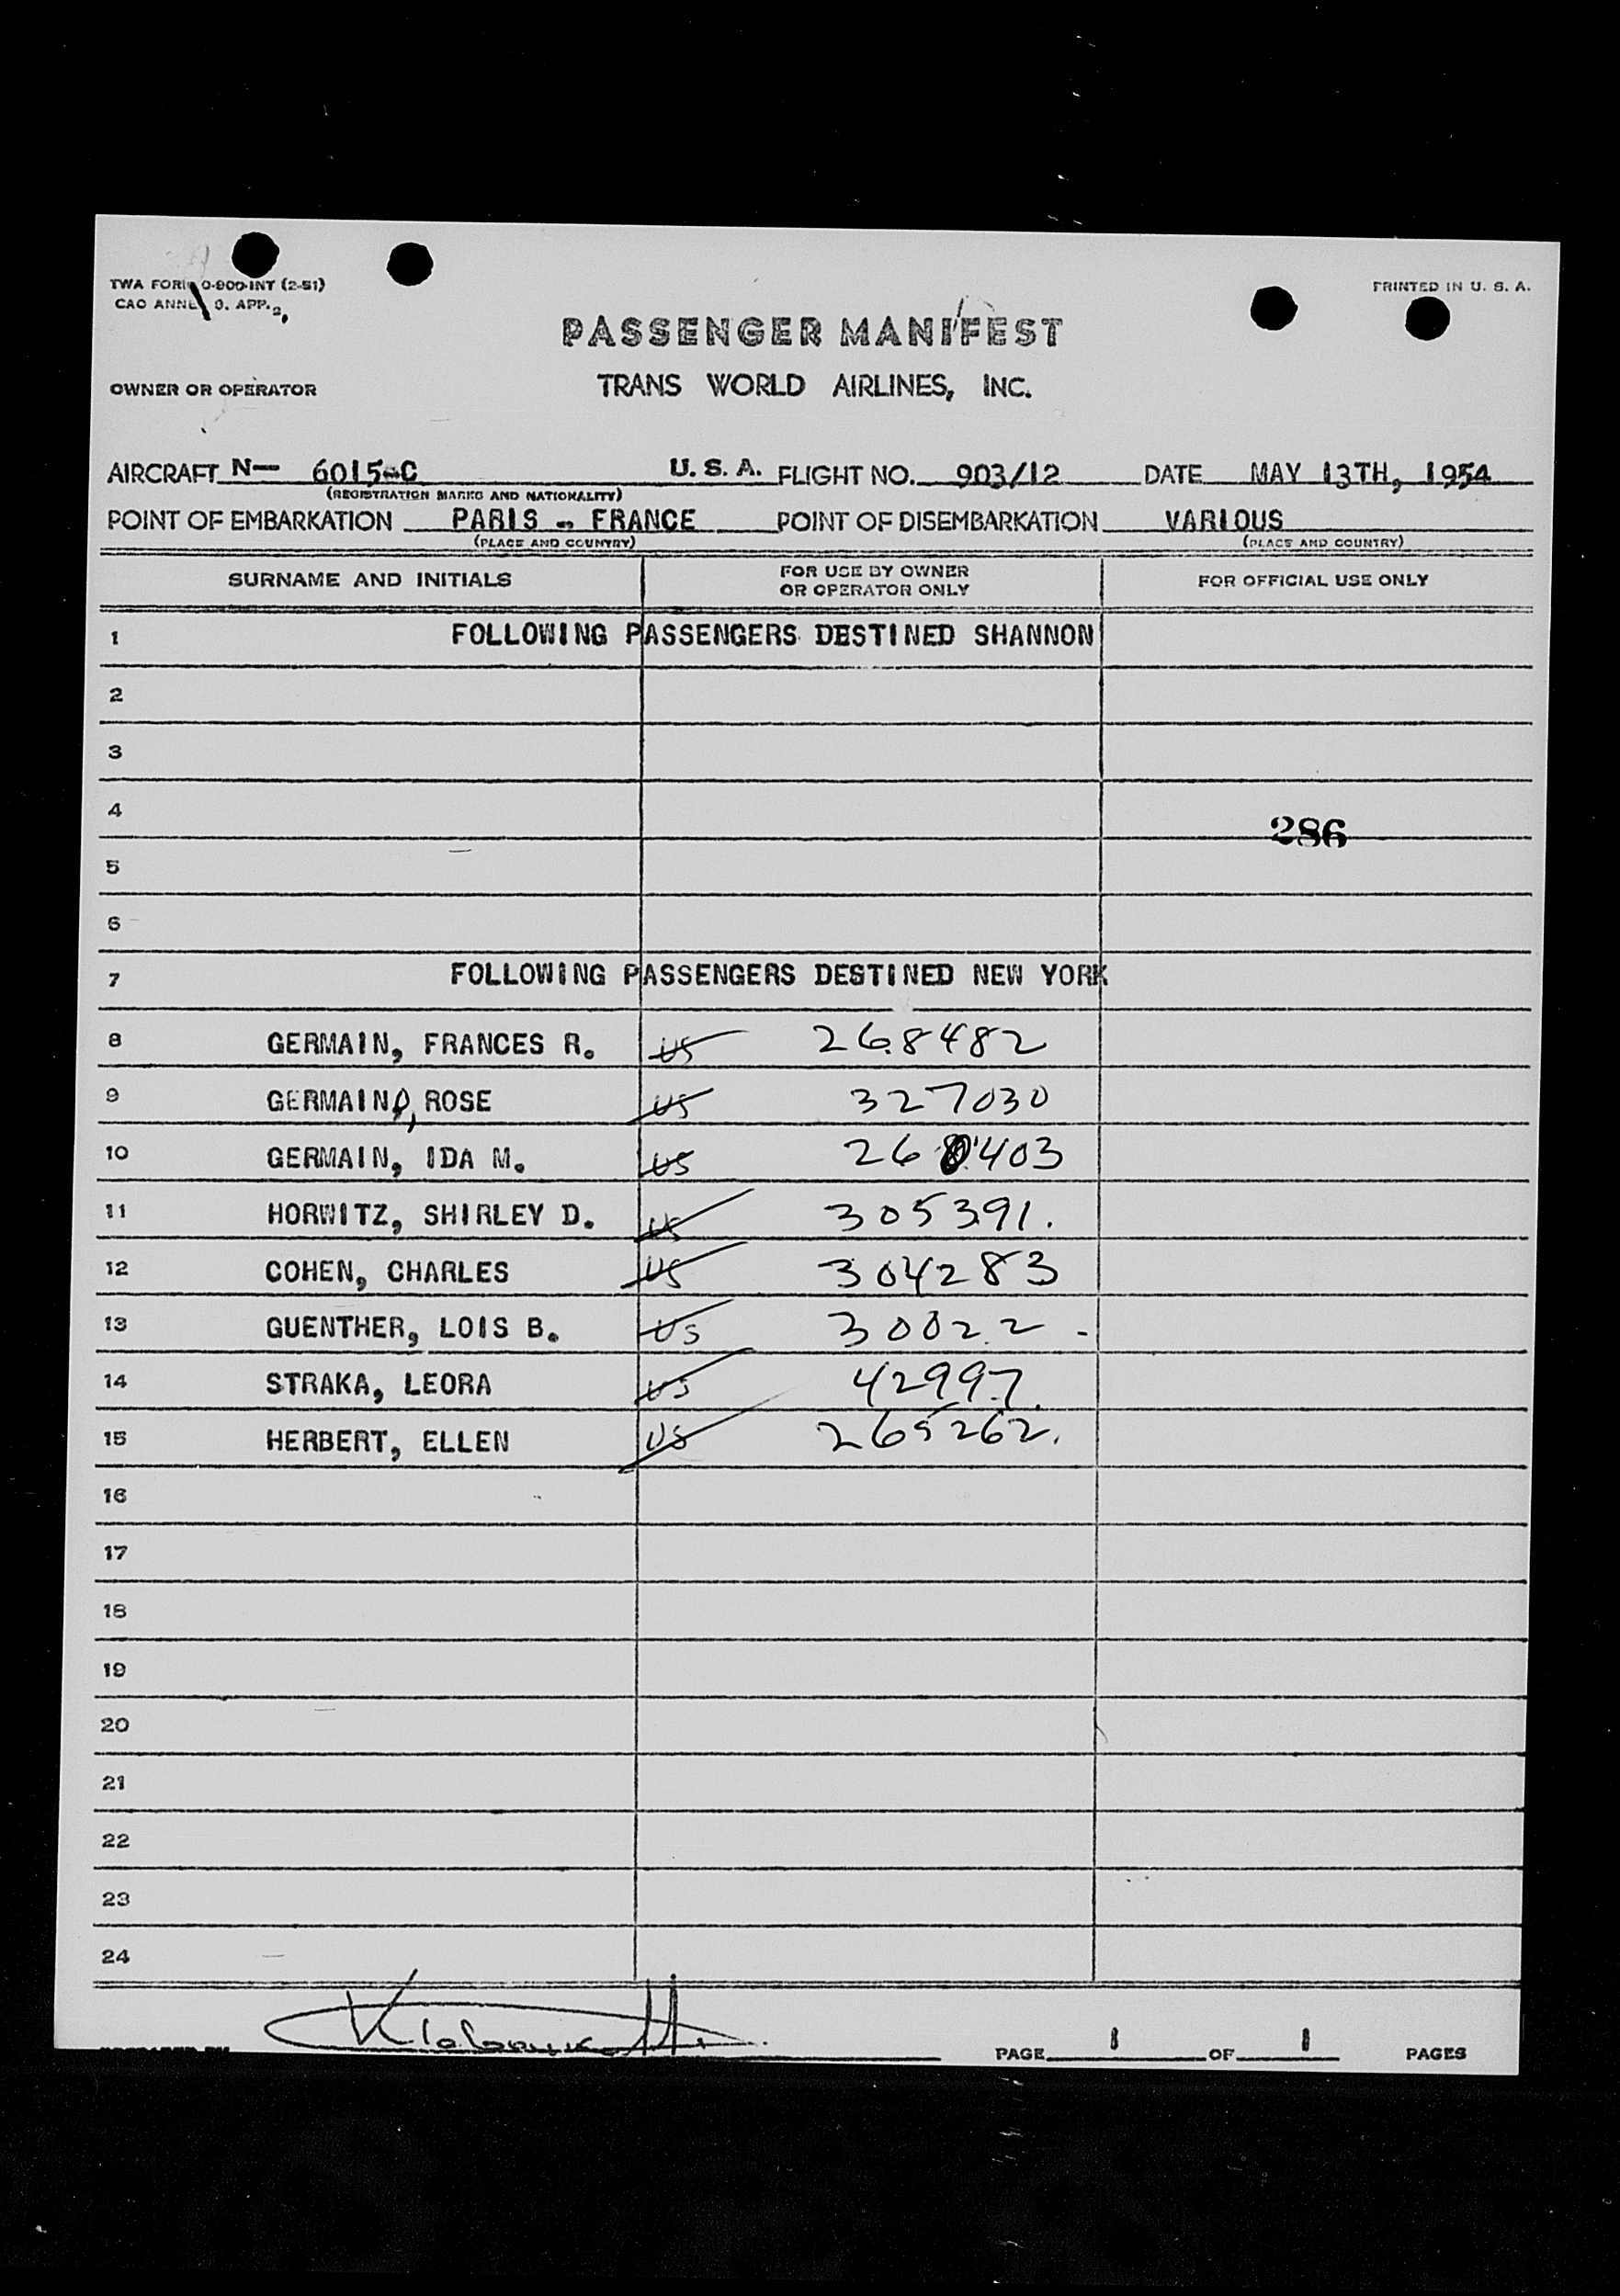 TWA FORM 0-900-INT (2-51)
PRINTED IN U. S. A.
PASSENGER MANIFEST
OWNER OR OPERATOR
TRANS WORLD AIRLINES, INC.
AIRCRAFT N— 6015-C U. S. A. FLIGHT NO. 903/12 DATE MAY 13TH, 1954
(REGISTRATION MARKS AND NATIONALITY)
POINT OF EMBARKATION PARIS - FRANCE POINT OF DISEMBARKATION VARIOUS
(PLACE AND COUNTRY) (PLACE AND COUNTRY)
SURNAME AND INITIALS FOR USE BY OWNER OR OPERATOR ONLY FOR OFFICIAL USE ONLY
1 FOLLOWING PASSENGERS DESTINED SHANNON
2
3
4 286
5
6
7 FOLLOWING PASSENGERS DESTINED NEW YORK
8 GERMAIN, FRANCES R. US 268482
9 GERMAIN, ROSE US 327030
10 GERMAIN, IDA M. US 268403
11 HORWITZ, SHIRLEY D. US 305391.
12 COHEN, CHARLES US 304283
13 GUENTHER, LOIS B. US 30022 -
14 STRAKA, LEORA US 42997.
15 HERBERT, ELLEN US 265262.
16
17
18
19
20
21
22
23
24
PAGE 1 OF 1 PAGES